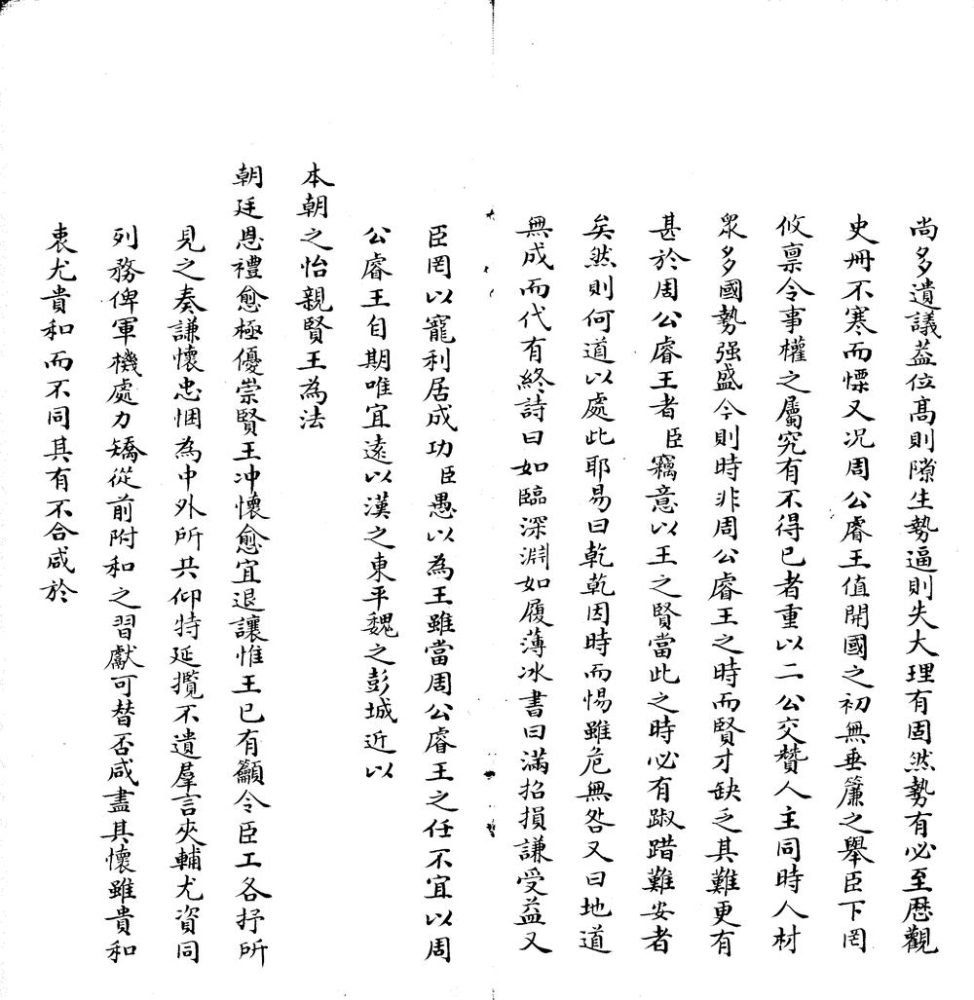 尚多遺議蓋位髙則隙生勢逼則失大理有固然勢有必至歷觀
史冊不寒而慄又况周公睿王值開國之初無垂簾之舉臣下罔
攸稟令事權之屬究有不得已者重以二公交贊人主同時人材
眾多國勢强盛今則時非周公睿王之時而賢才缺乏其難更有
甚於周公睿王者臣竊意以王之賢當此之時必有踧踖難安者
矣然則何道以處此耶易曰乾乾因時而惕雖危無咎又曰地道
無成而代有終詩曰如臨深淵如履薄冰書曰滿招損謙受益又
臣罔以寵利居成功臣愚以為王雖當周公睿王之任不宜以周
公睿王自期唯宜遠以漢之東平魏之彭城近以
本朝之怡親賢王為法
朝廷恩禮愈極優崇賢王冲懷愈宜退讓惟王已有籲令臣工各抒所
見之奏謙懷忠悃為中外所共仰特延攬不遺羣言夾輔尤資同
列務俾軍機處力矯從前附和之習獻可替否咸盡其懷雖貴和
衷尤貴和而不同其有不合咸於